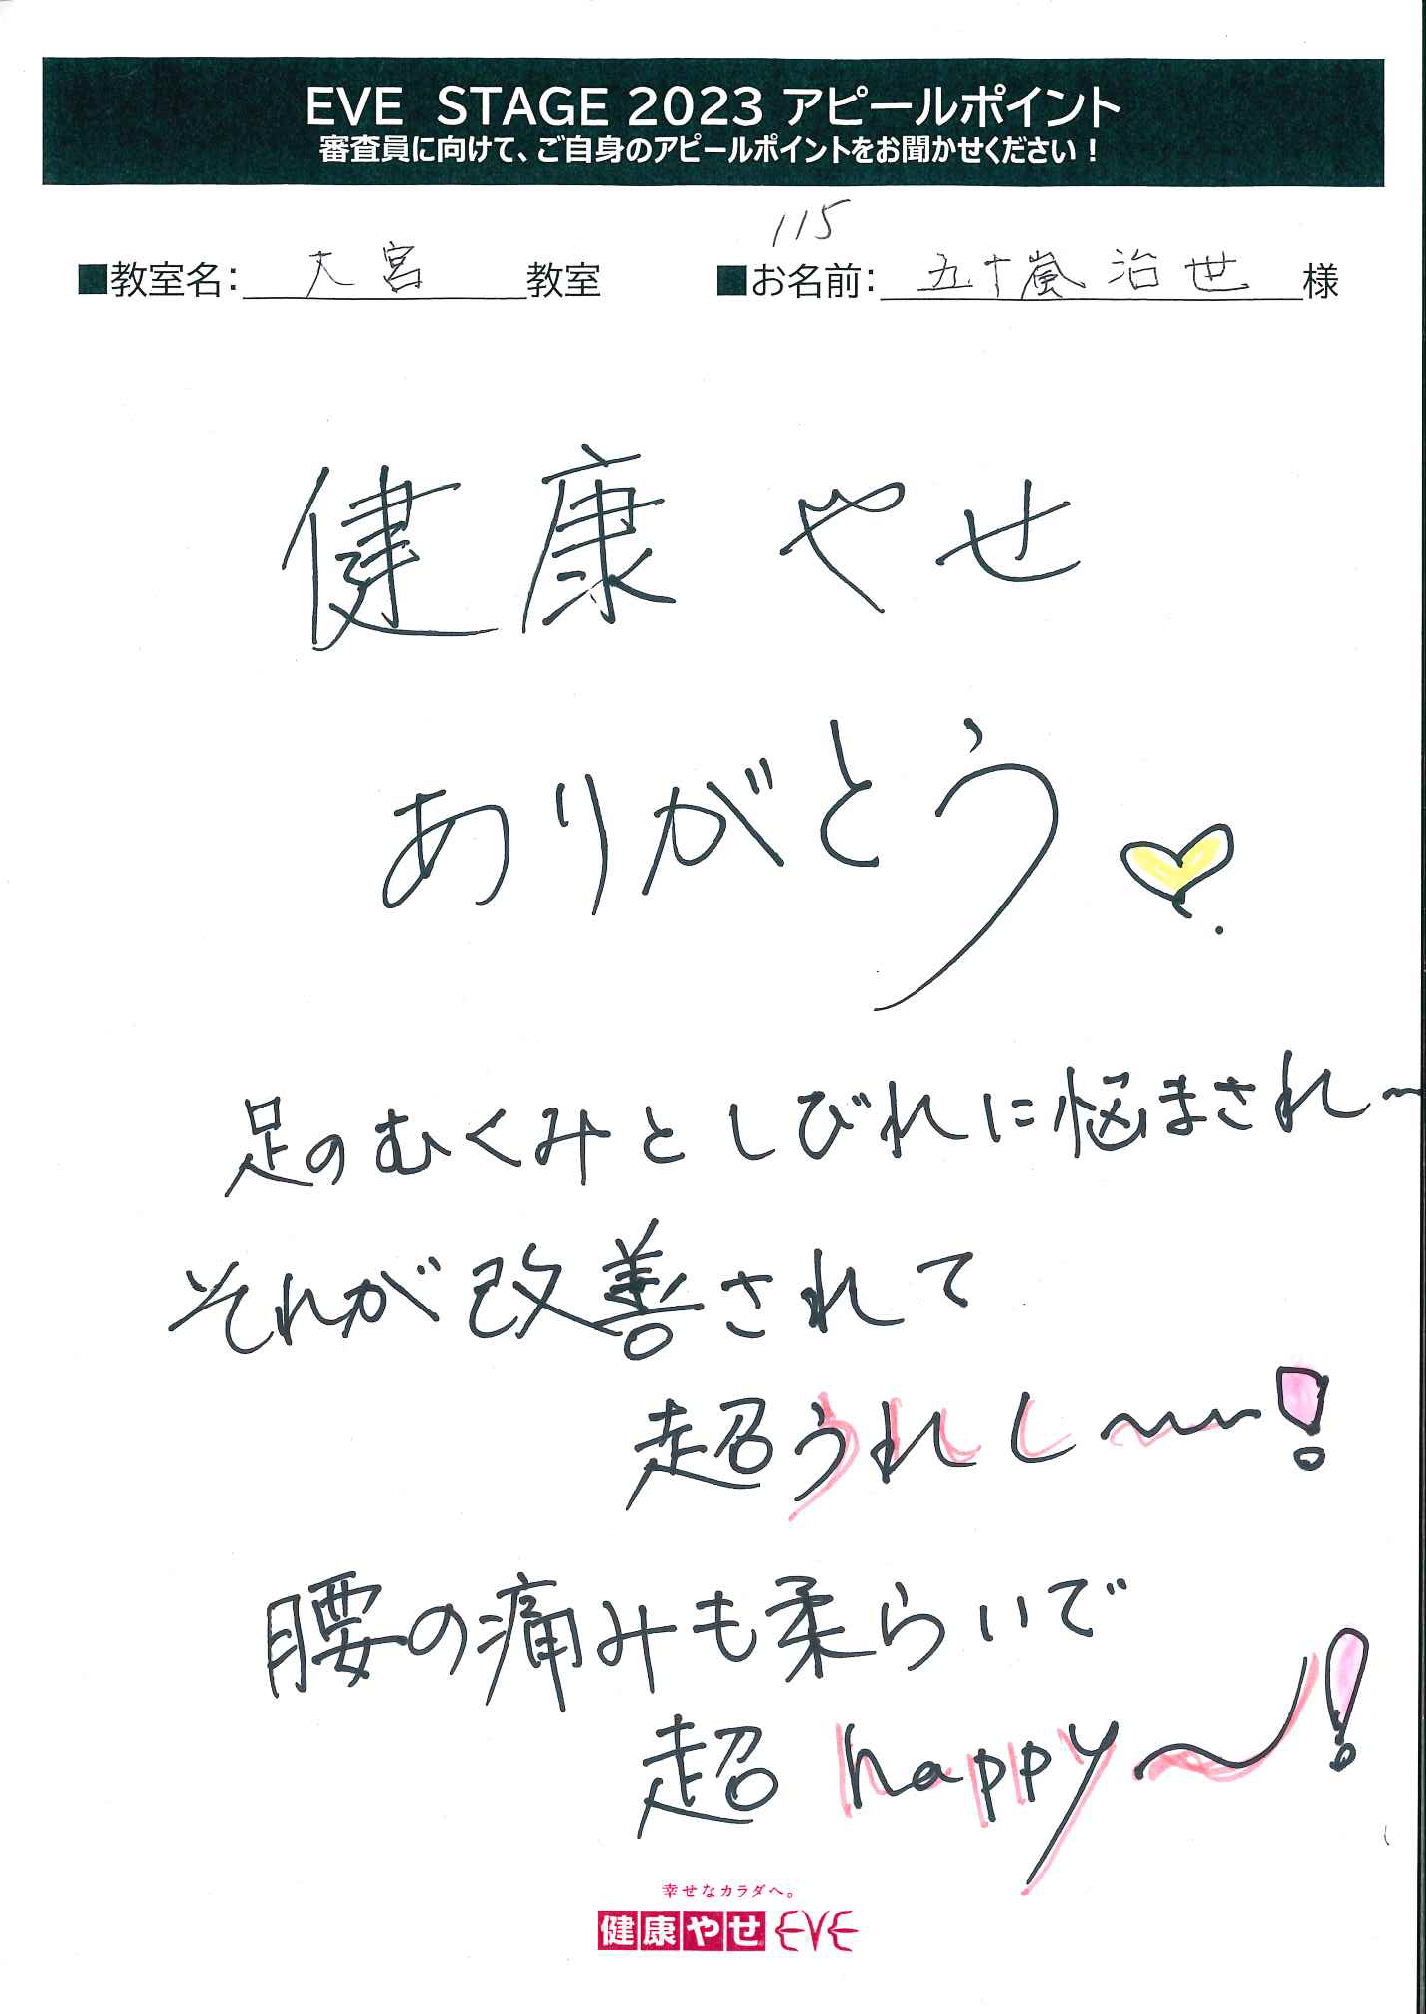 EVE STAGE 2023 アピールポイント
審査員に向けて、ご自身のアピールポイントをお聞かせください！
115
■教室名：大宮教室 ■お名前：五十嵐治世様
健康やせ
ありがとう
足のむくみとしびれに悩まされ〜
それが改善されて
超うれし〜〜！
腰の痛みも柔らいで
超happy〜！
幸せなカラダへ。
健康やせEVE